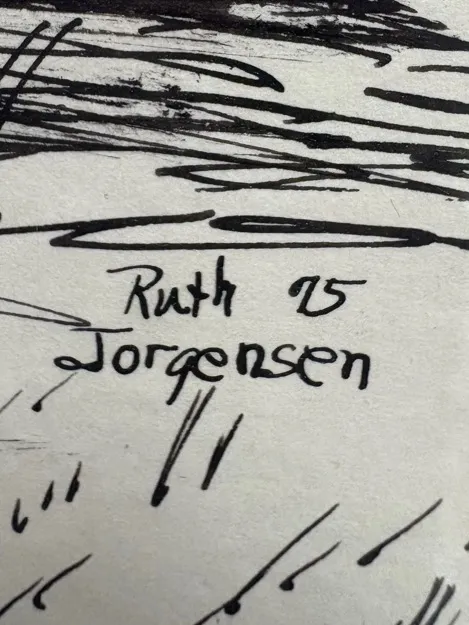 Ruth 75
Jorgensen